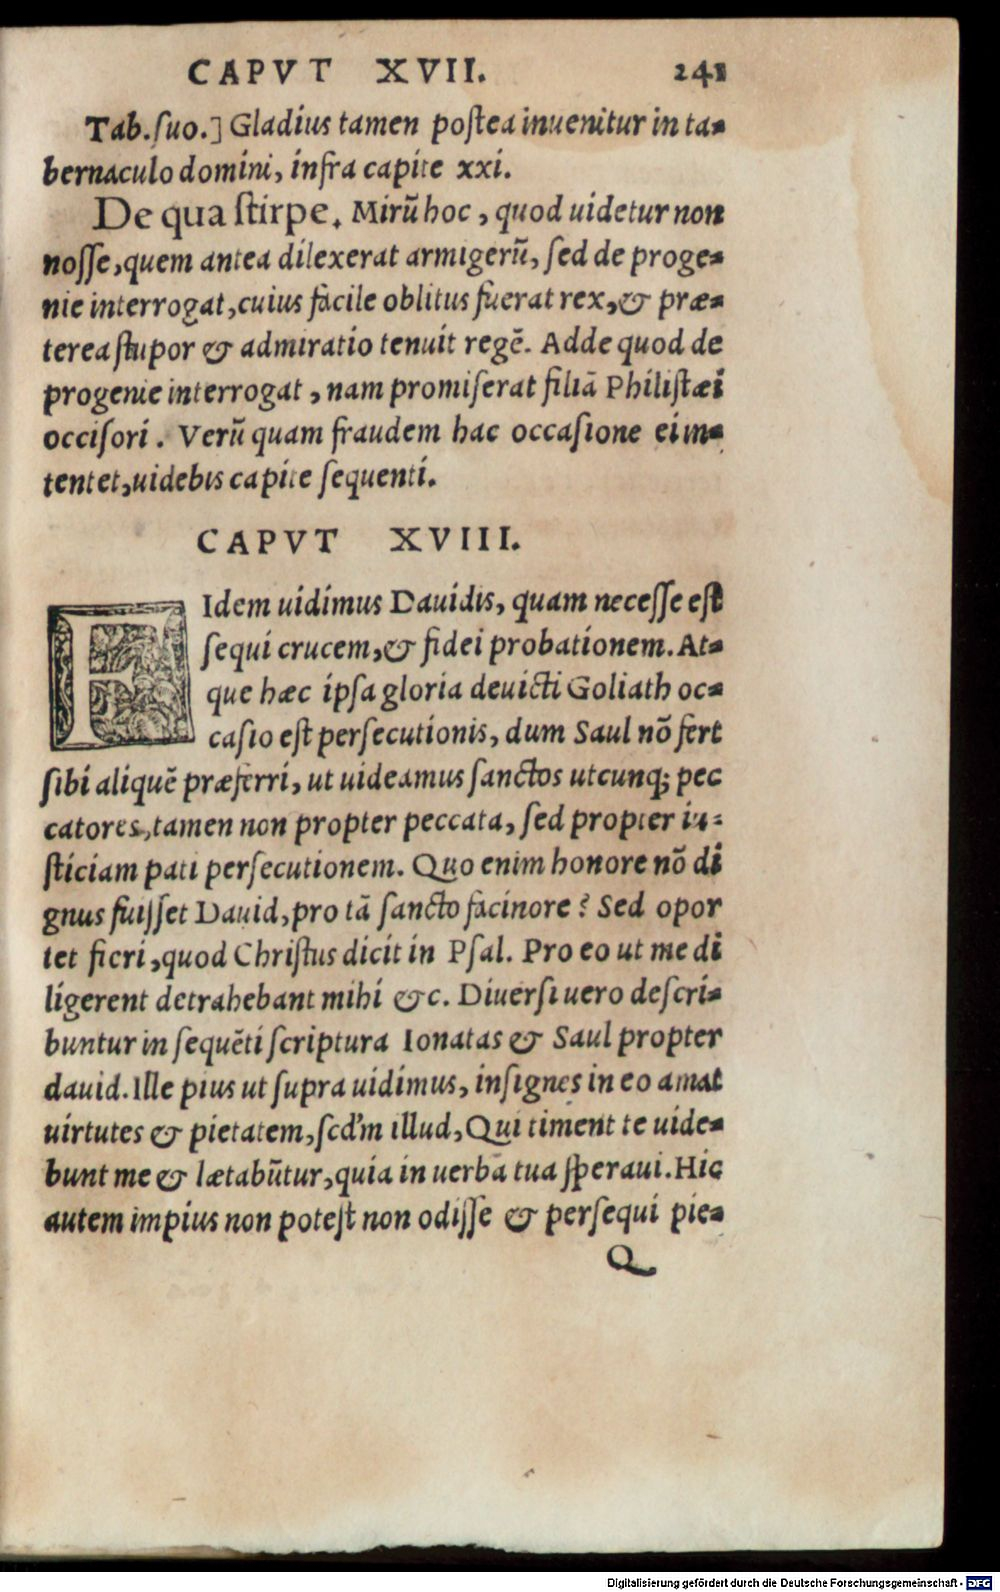 CAPVT XVII. 241
Tab. ſuo.] Gladius tamen poſtea inuenitur in ta-
bernaculo domini, infra capite xxi.
De qua ſtirpe. Mirũ hoc, quod uidetur non
noſſe, quem antea dilexerat armigerũ, ſed de proge-
nie interrogat, cuius facile oblitus fuerat rex, & præ-
terea ſtupor & admiratio tenuit regẽ. Adde quod de
progenie interrogat, nam promiſerat filiã Philiſtæi
occiſori. Verũ quam fraudem hac occaſione ei in-
tentet, uidebis capite ſequenti.
CAPVT XVIII.
FIdem uidimus Dauidis, quam neceſſe eſt
ſequi crucem, & fidei probationem. At-
que hæc ipſa gloria deuicti Goliath oc-
caſio eſt perſecutionis, dum Saul nõ fert
ſibi aliquẽ præferri, ut uideamus ſanctos utcunq; pec
catores, tamen non propter peccata, ſed propter iu-
ſticiam pati perſecutionem. Quo enim honore nõ di
gnus fuiſſet Dauid, pro tã ſancto facinore? Sed opor
tet fieri, quod Chriſtus dicit in Pſal. Pro eo ut me di
ligerent detrahebant mihi &c. Diuerſi uero deſcri-
buntur in ſequẽti ſcriptura Ionatas & Saul propter
dauid. Ille pius ut ſupra uidimus, inſignes in eo amat
uirtutes & pietatem, ſcd'm illud, Qui timent te uide-
bunt me & lætabũtur, quia in uerba tua ſperaui. Hic
autem impius non poteſt non odiſſe & perſequi pie-
Q
Digitalisierung gefördert durch die Deutsche Forschungsgemeinschaft - DFG